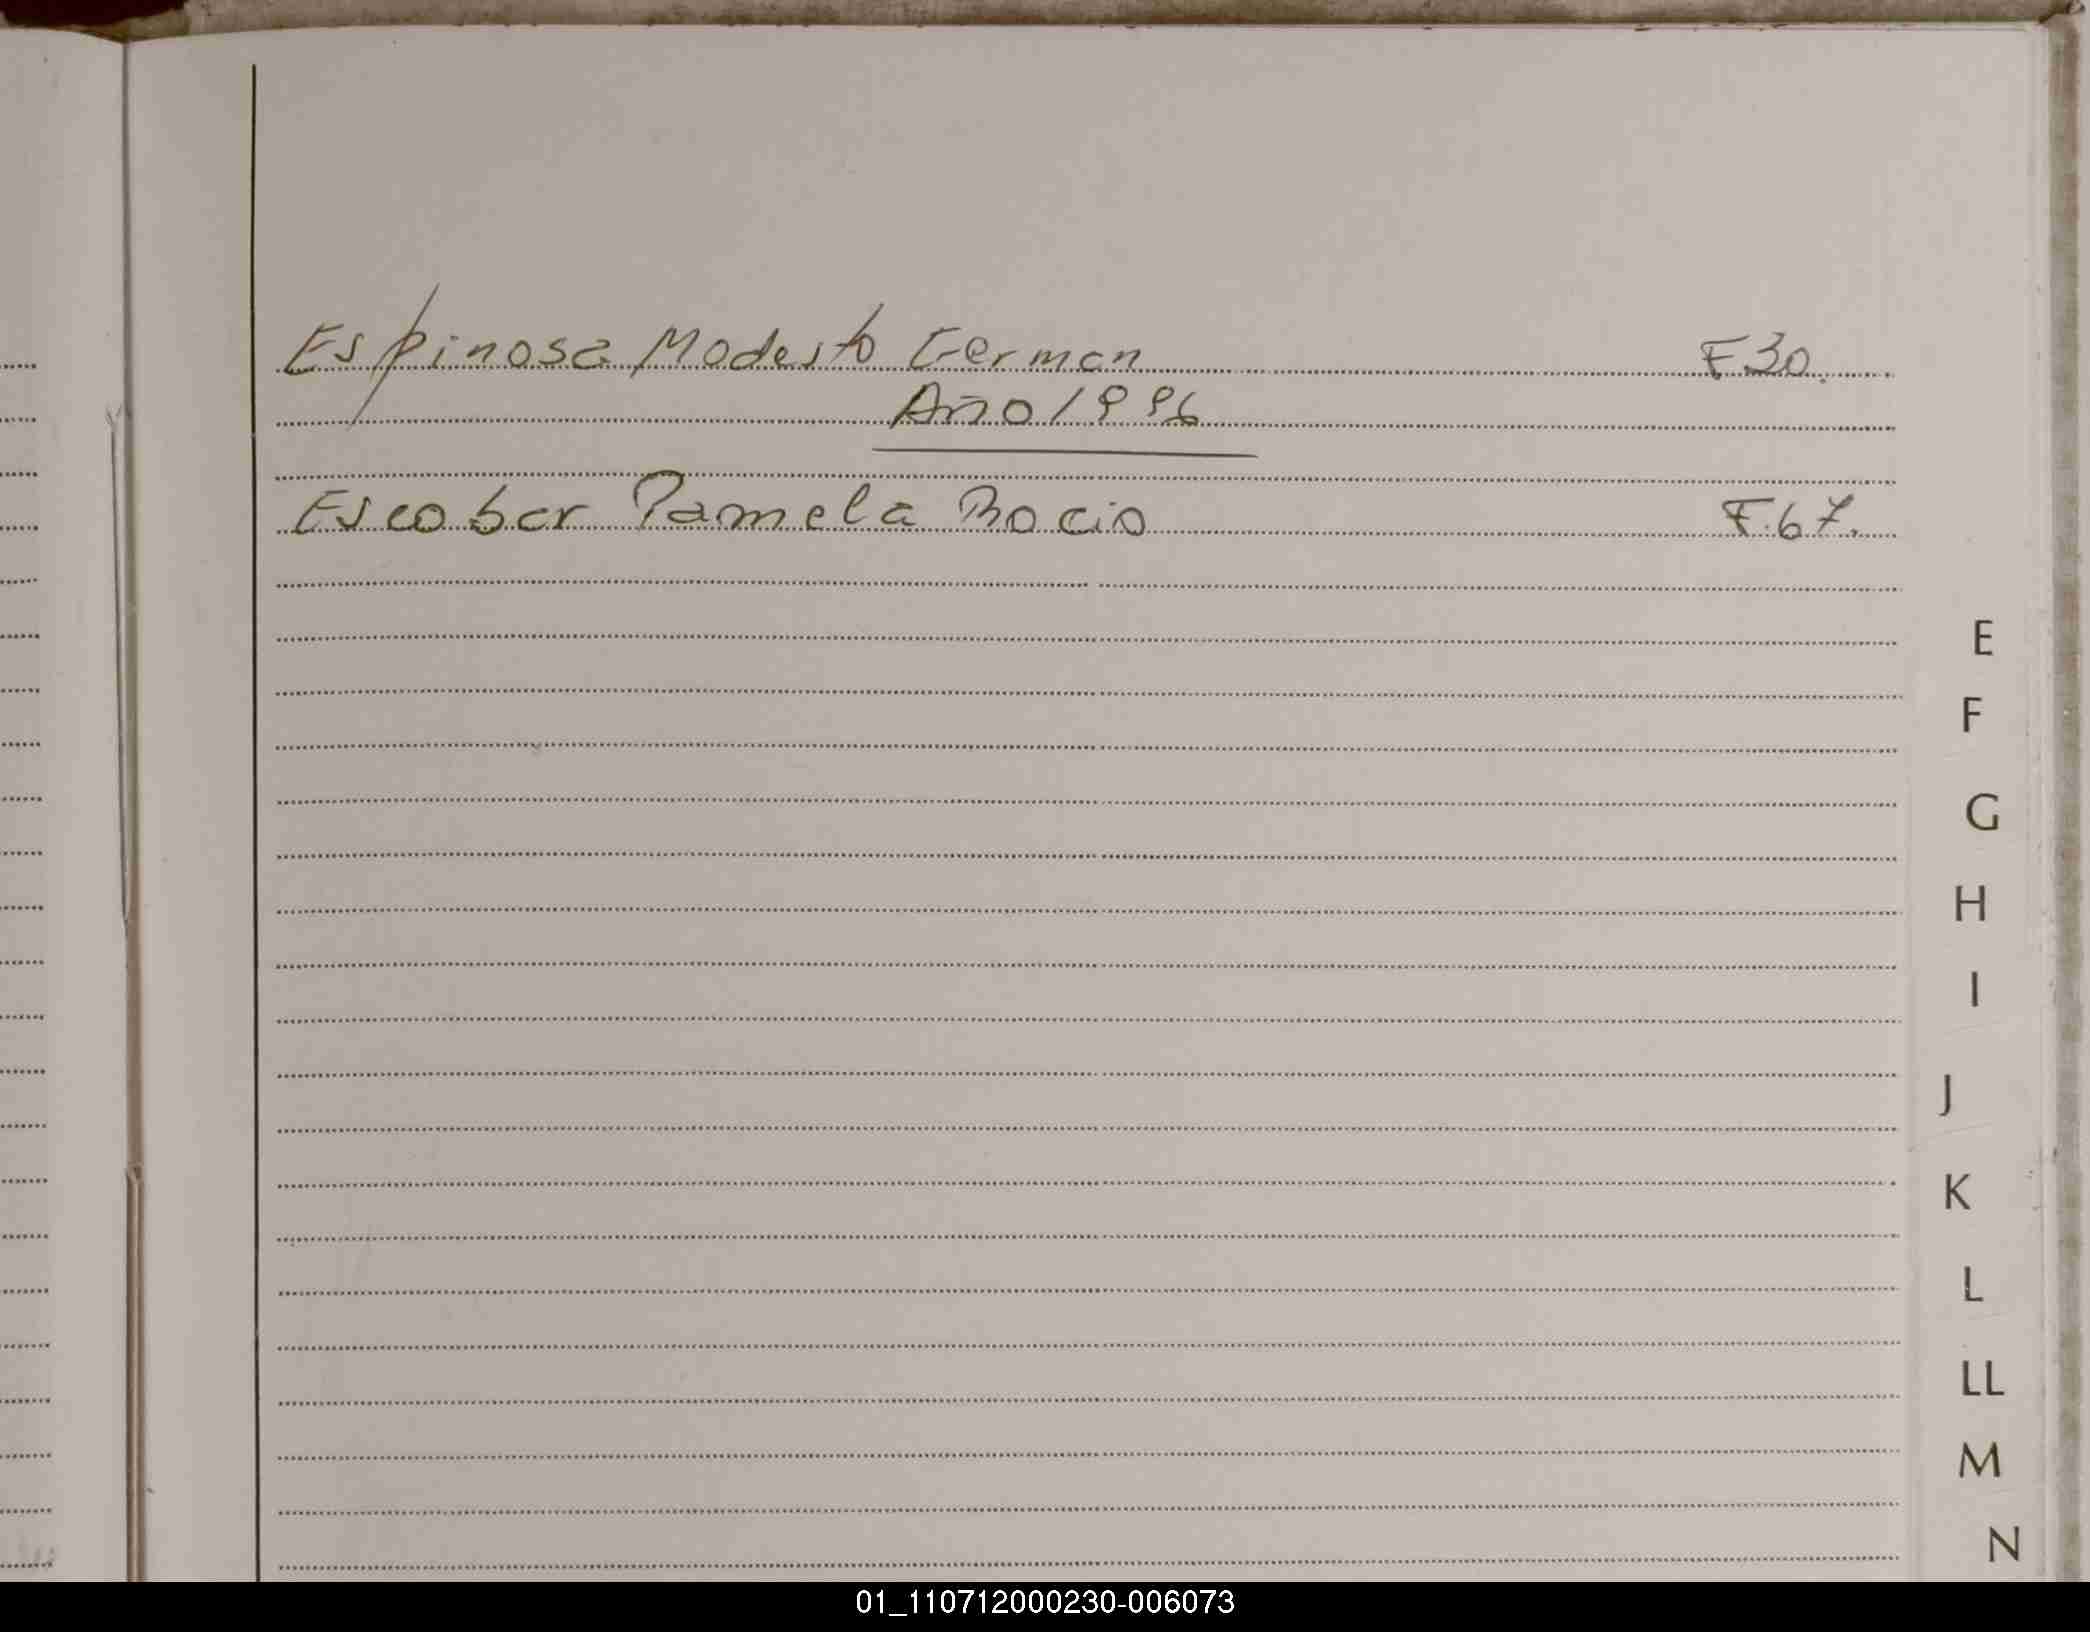 Espinosa Modesto German F 30.
Año 1996
Escobar Pamela Rocio F. 67.
E
F
G
H
I
J
K
L
LL
M
N
01_110712000230-006073